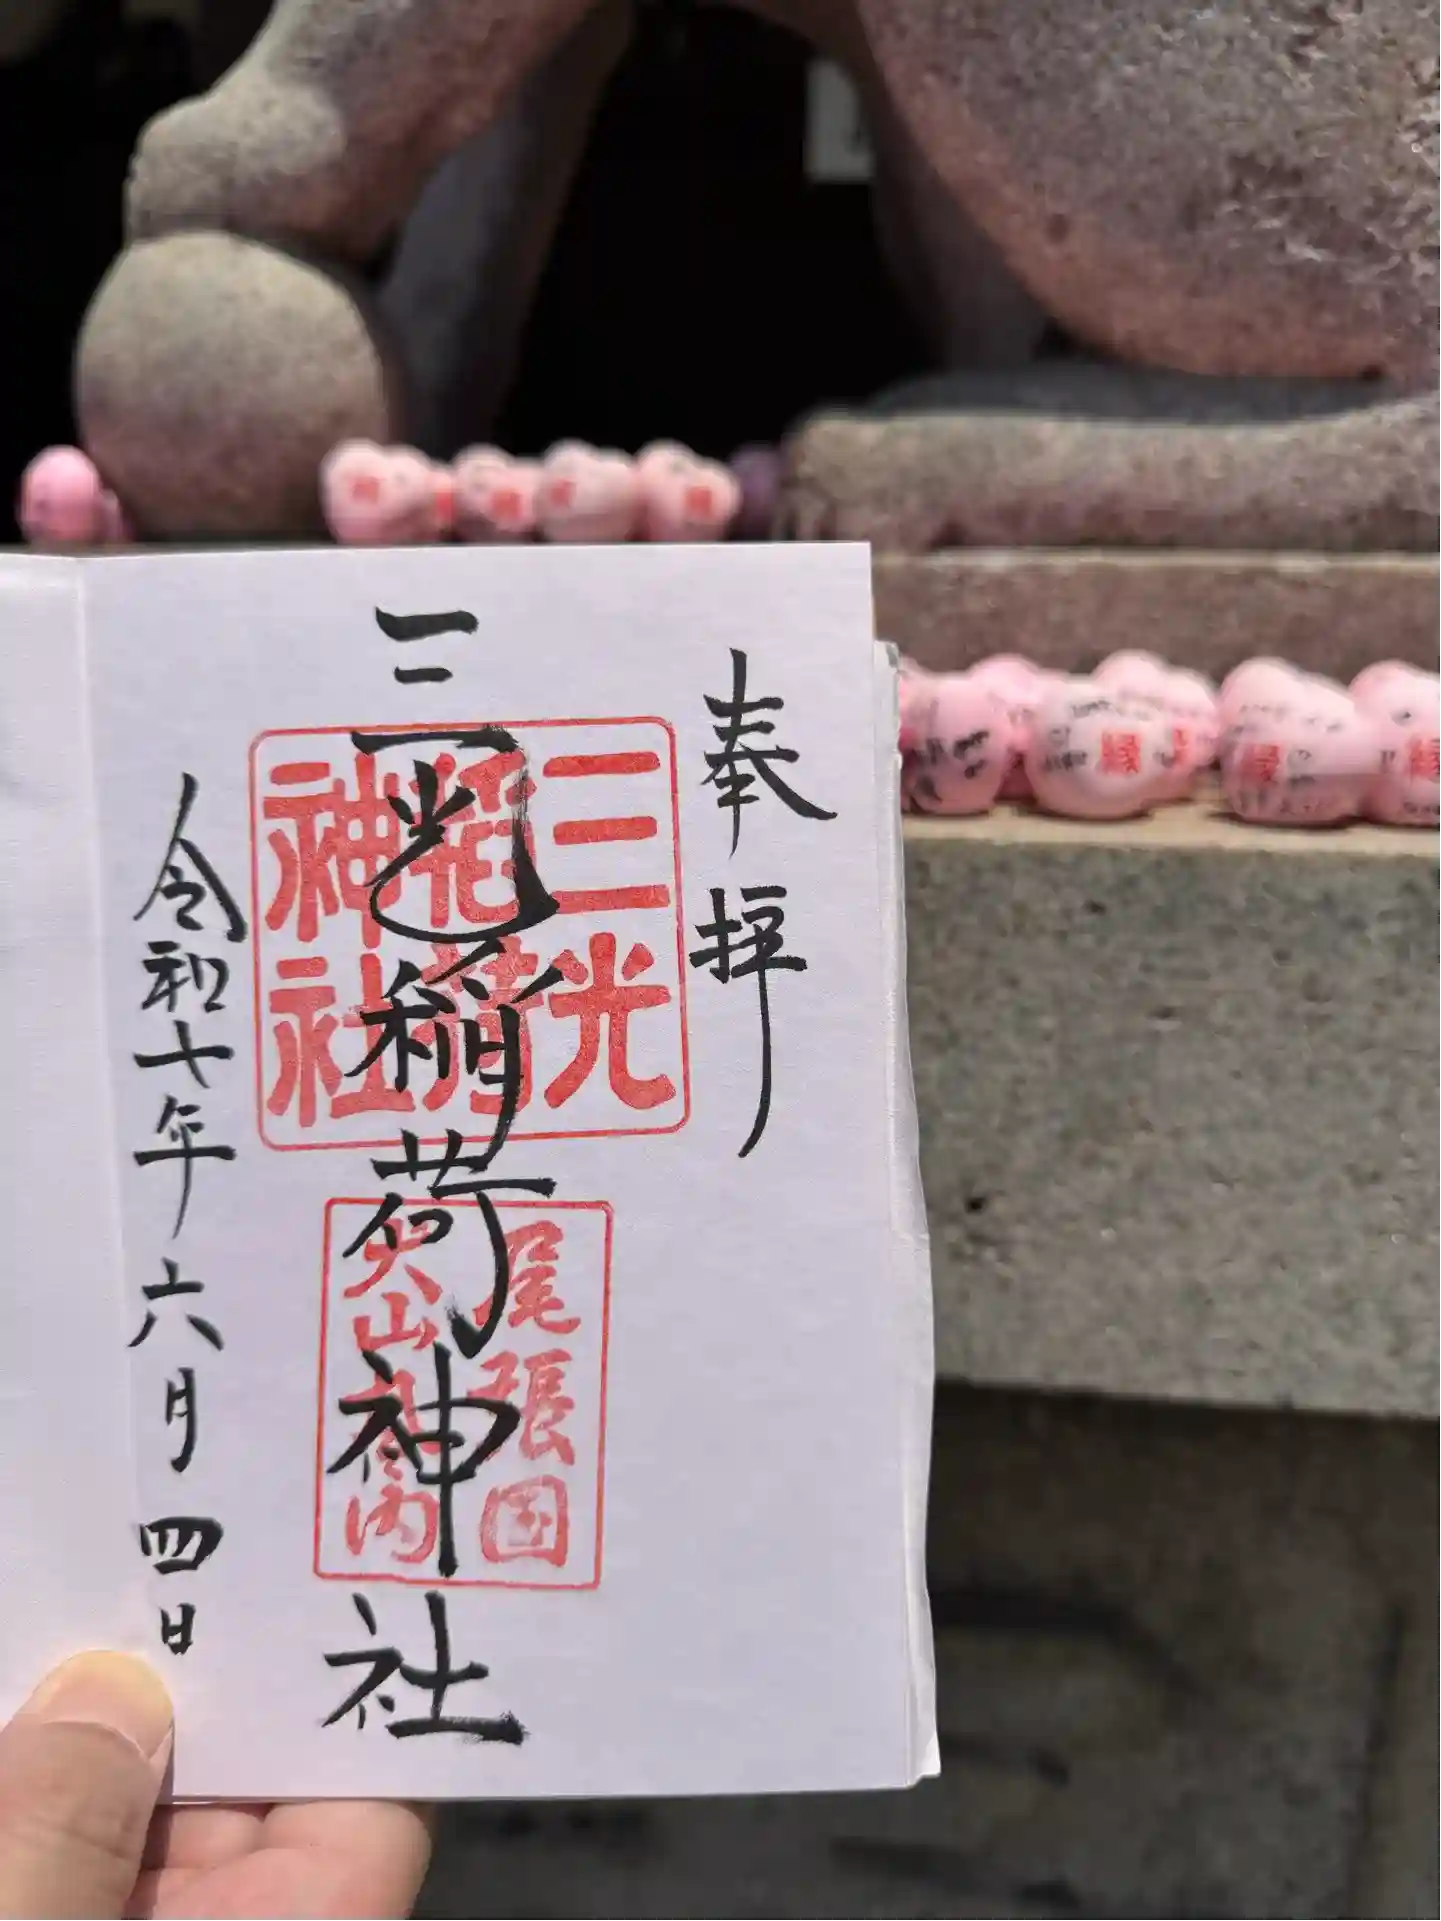 奉拝
三光稲荷神社
三光
稲荷
神社
尾張国
犬山城内
令和七年六月四日
縁
縁
縁